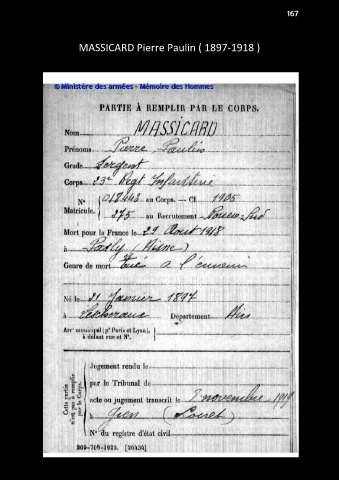 167
MASSICARD Pierre Paulin ( 1897-1918 )
© Ministère des armées - Mémoire des Hommes
PARTIE À REMPLIR PAR LE CORPS.
Nom MASSICARD
Prénoms Pierre Paulin
Grade Sergent
Corps 23e Régt Infanterie
N° 018448 au Corps. — Cl 1905
Matricule. 275 au Recrutement
Mort pour la France le 29 Août 1918
à Pasly (Aisne)
Genre de mort Tué à l'ennemi
Né le 21 Janvier 1897
à Lescheroux Département Ain
Arrt municipal (pr Paris et Lyon),
à défaut rue et N°.
Cette partie
n'est pas à remplir
par le Corps.
Jugement rendu le
par le Tribunal de
acte ou jugement transcrit le 8 novembre 1919
à Gien (Loiret)
N° du registre d'état civil
209-708-1922. [26434]